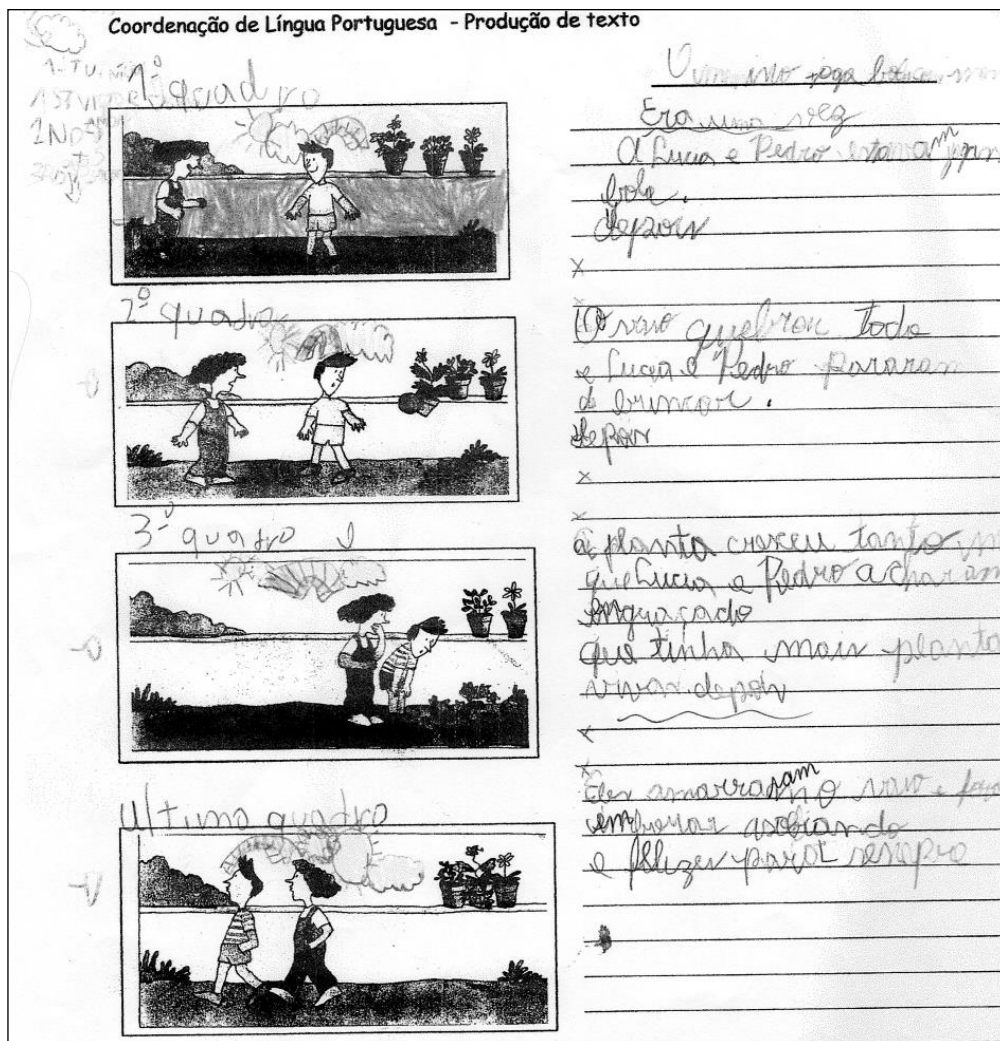 Coordenação de Língua Portuguesa - Produção de texto
1º quadro
joga
Era uma vez
A Lucia e Pedro estavam
bola.
depois
x
2º quadro
x
O vaso quebrou todo
e Lucia e Pedro pararam
de brincar.
depois
x
3º quadro
x
a planta creceu tanto
que Lucia e Pedro acharam
enguaçado
que tinha mais planta
vivas depois
x
x
Ultimo quadro
Eles amarraram o vaso e
embora asobiando
e felizes para